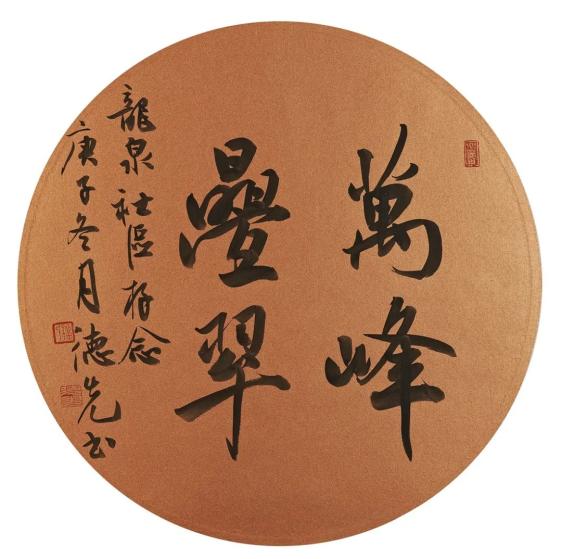 萬峰
疊翠
龍泉社區存念
庚子冬月德先书